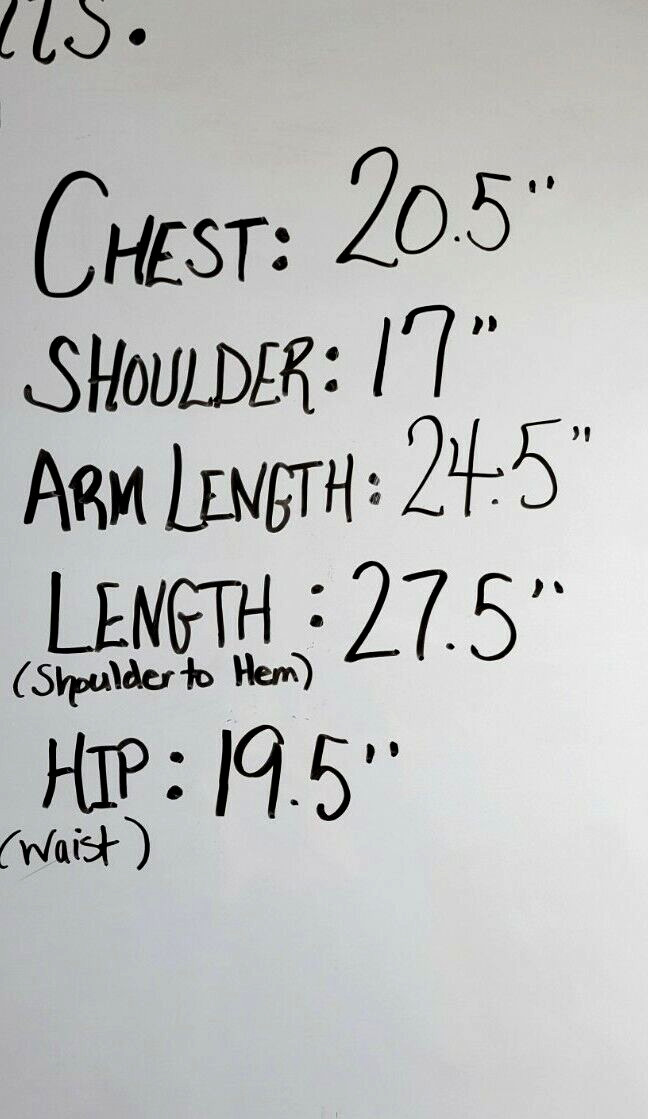 CHEST: 20.5"
SHOULDER: 17"
ARM LENGTH: 24.5"
LENGTH : 27.5"
(Shoulder to Hem)
HIP: 19.5"
(Waist)